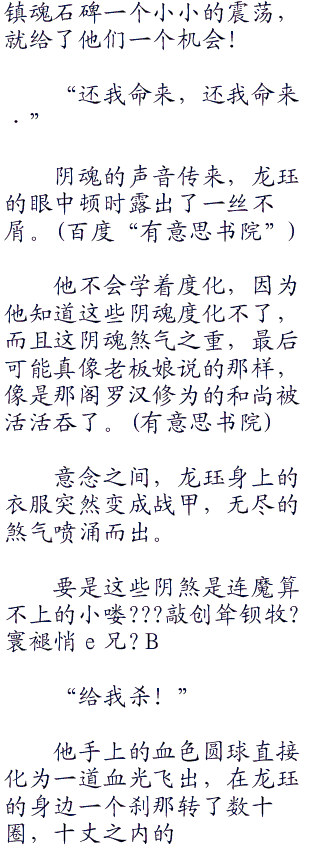 镇魂石碑一个小小的震荡，
就给了他们一个机会！
“还我命来，还我命来
．”
阴魂的声音传来，龙珏
的眼中顿时露出了一丝不
屑。(百度“有意思书院”)
他不会学着度化，因为
他知道这些阴魂度化不了，
而且这阴魂煞气之重，最后
可能真像老板娘说的那样，
像是那阁罗汉修为的和尚被
活活吞了。(有意思书院)
意念之间，龙珏身上的
衣服突然变成战甲，无尽的
煞气喷涌而出。
要是这些阴煞是连魔算
不上的小喽???敲创耸钡牧?
寰褪悄 e 兄?B
“给我杀！”
他手上的血色圆球直接
化为一道血光飞出，在龙珏
的身边一个刹那转了数十
圈，十丈之内的